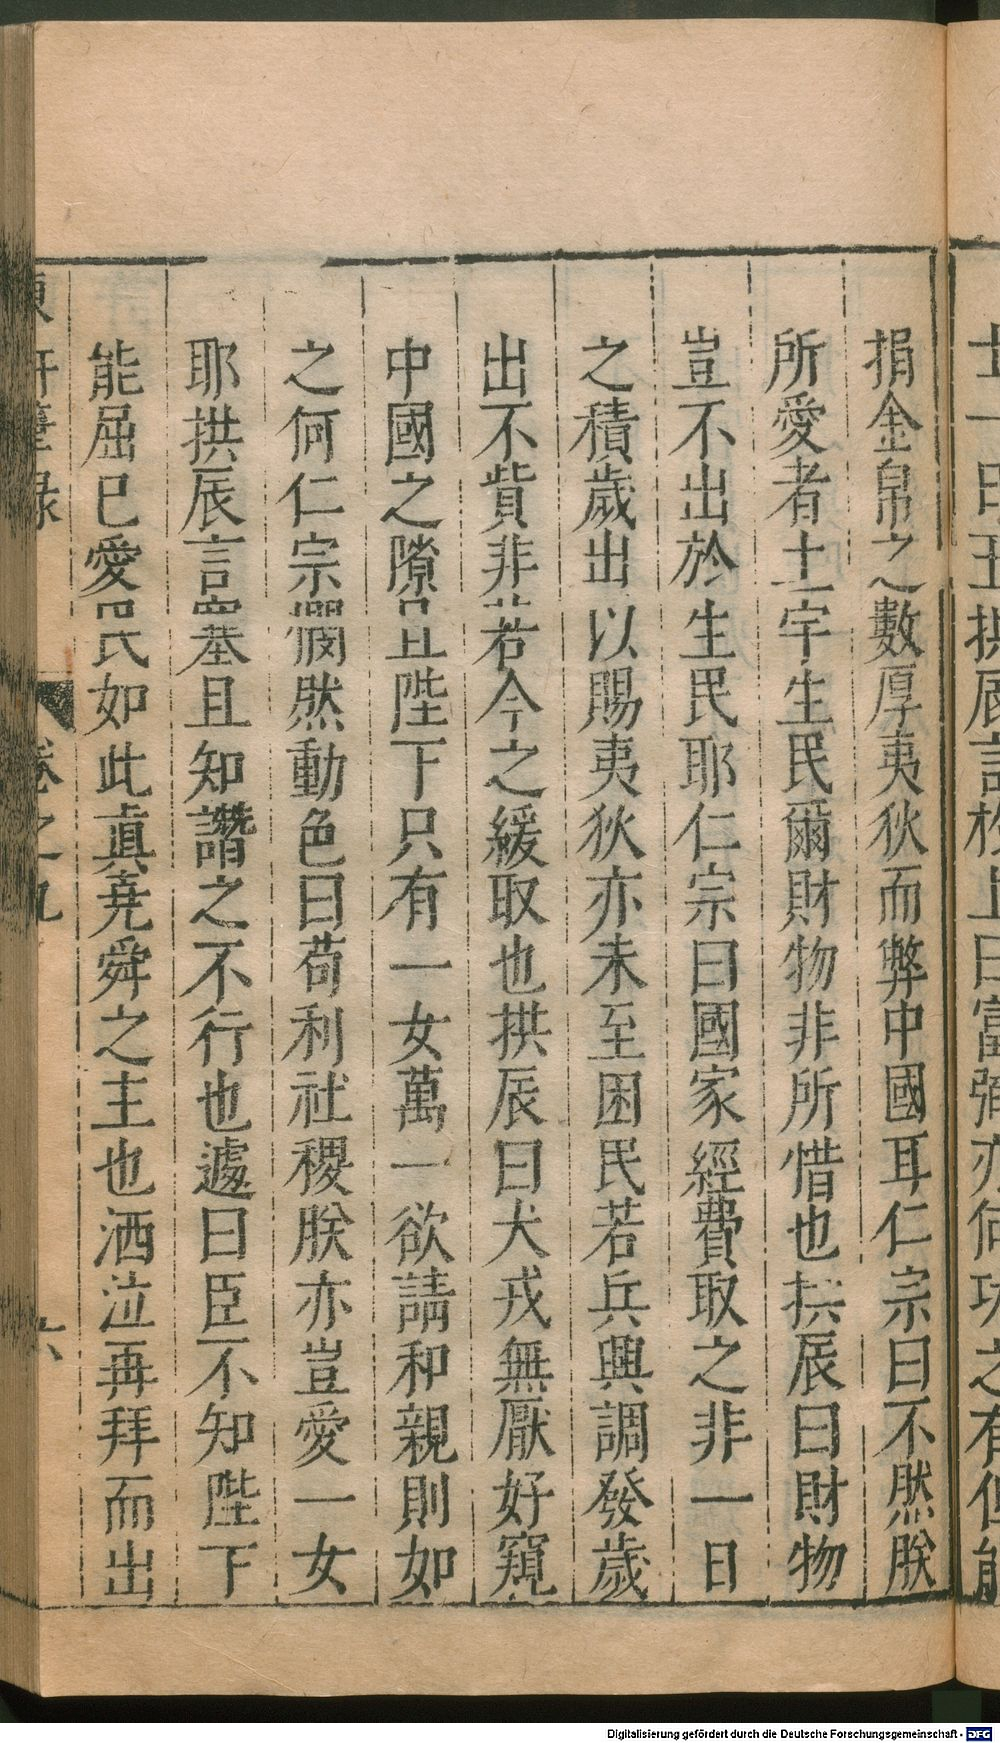 士一日王拱辰言於上曰富弼亦何功之有但能
捐金帛之數厚夷狄而弊中國耳仁宗曰不然朕
所愛者土宇生民爾財物非所惜也拱辰曰財物
豈不出於生民耶仁宗曰國家經費取之非一日
之積歲出以賜夷狄亦未至困民若兵興調發歲
出不貲非若今之緩取也拱辰曰犬戎無厭好窺
中國之隙且陛下只有一女萬一欲請和親則如
之何仁宗憫然動色曰苟利社稷朕亦豈愛一女
耶拱辰言塞且知譖之不行也遽曰臣不知陛下
能屈巳愛民如此真堯舜之主也洒泣再拜而出
東軒筆錄 卷之九 六
Digitalisierung gefördert durch die Deutsche Forschungsgemeinschaft - DFG